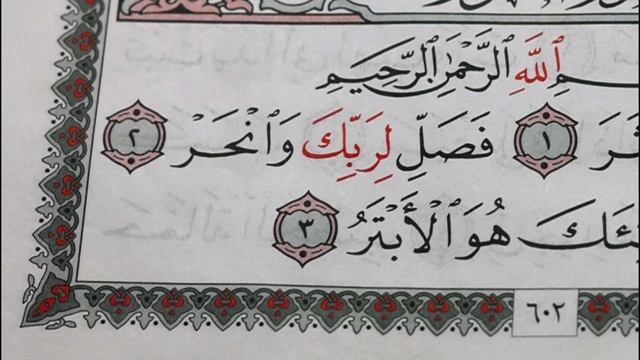 ٱللَّهِ ٱلرَّحْمَٰنِ ٱلرَّحِيمِ
١ فَصَلِّ لِرَبِّكَ وَٱنْحَرْ ٢
هُوَ ٱلْأَبْتَرُ ٣
٦٠٢